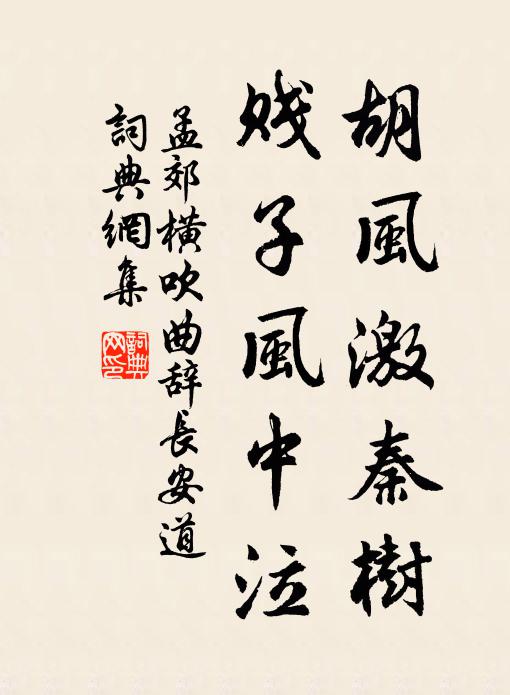 胡風激秦樹
賤子風中泣
孟郊横吹曲辞長安道
詞典網集
詞典网印